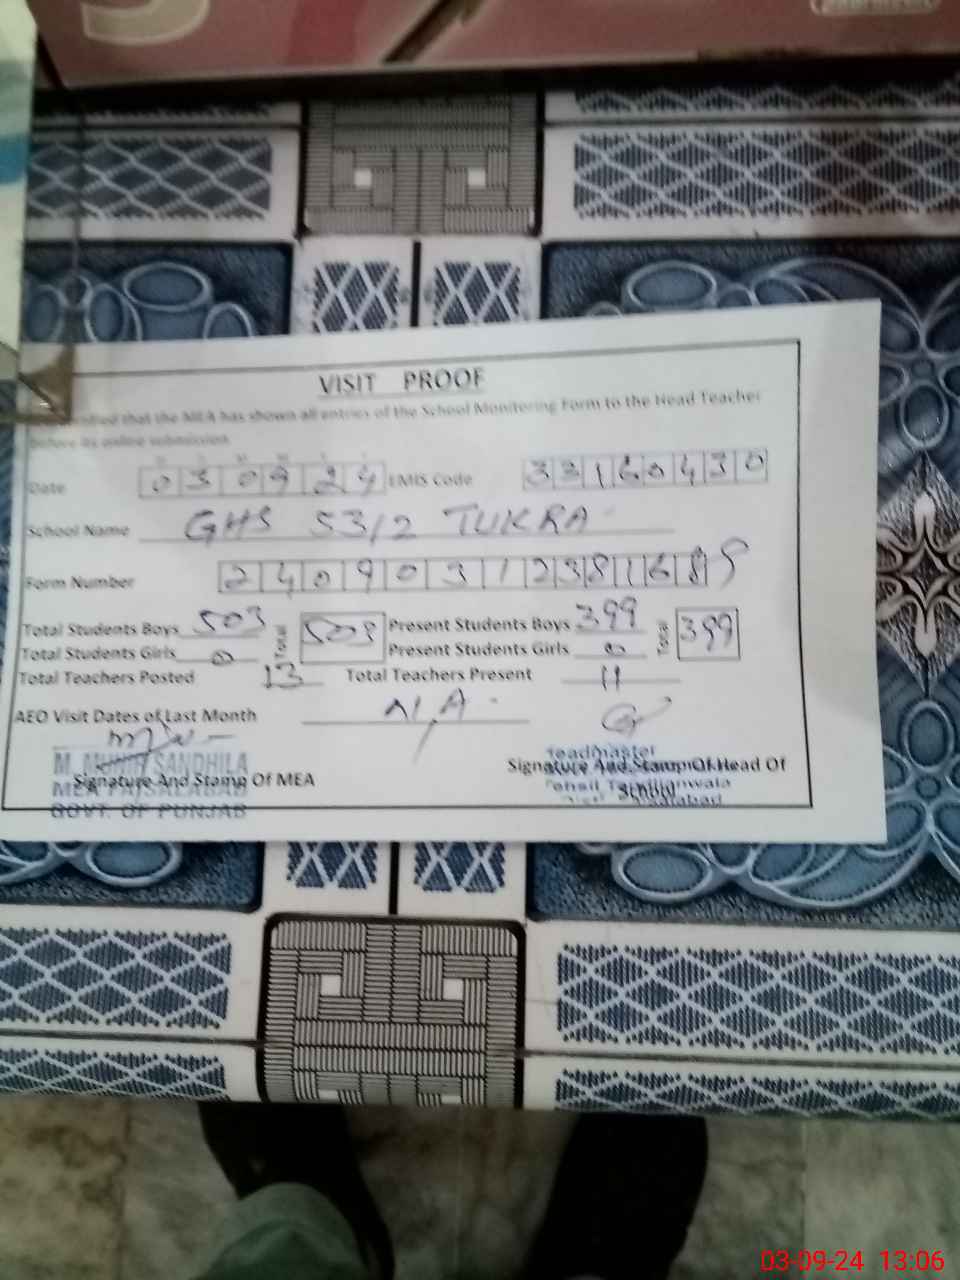 VISIT PROOF
that the MEA has shown all entries of the School Monitoring Form to the Head Teacher
before its online submission
Date 030924 EMIS Code 33160430
School Name GHS 53/2 TUKRA
Form Number 2409031238168
Total Students Boys 503 Total 503 Present Students Boys 399 Total 399
Total Students Girls 0 Present Students Girls 0
Total Teachers Posted 13 Total Teachers Present 11
AEO Visit Dates of Last Month N/A
M. MUNIR SANDHILA
Signature And Stamp Of MEA
MEA FAISALABAD
GOVT. OF PUNJAB
Headmaster
Signature And Stamp Of Head Of
School
03-09-24 13:06